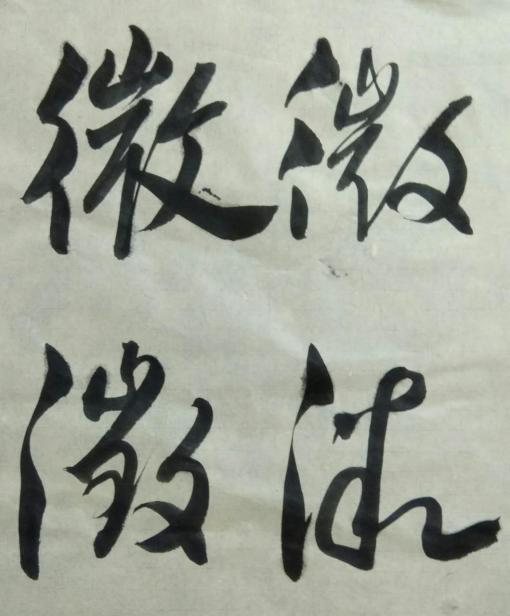 微微
微微